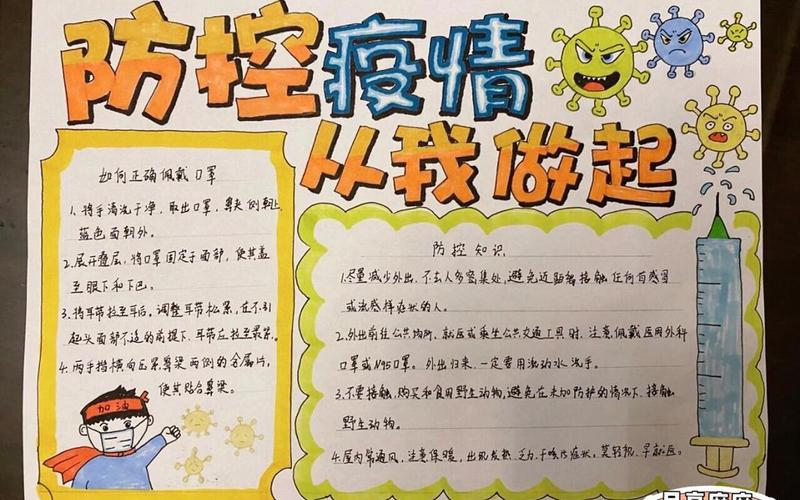 防控疫情
从我做起
如何正确佩戴口罩
1、将手清洗干净,取出口罩,鼻夹侧朝上,
蓝色面朝外。
2、展开叠层,将口罩固定于面部,使其盖
至眼下和下巴。
3、将耳带拉至耳后,调整耳带松紧,在不引
起头面部不适的前提下,耳带应拉至最紧。
4、两手指横向压紧鼻梁两侧的金属片,
使其贴合鼻梁。
加油
防控知识
1.尽量减少外出,不去人多密集处,避免近距离接触任何有感冒
或流感样症状的人。
2.外出前往公共场所,就医或乘坐公共交通工具时,注意佩戴医用外科
口罩或N95口罩。外出归来,一定要用流动水洗手。
3.不要接触、购买和食用野生动物,避免在未加防护的情况下,接触
野生动物。
4.屋内常通风,注意保暖,出现发热、乏力、干咳等症状,莫轻视,早就医。